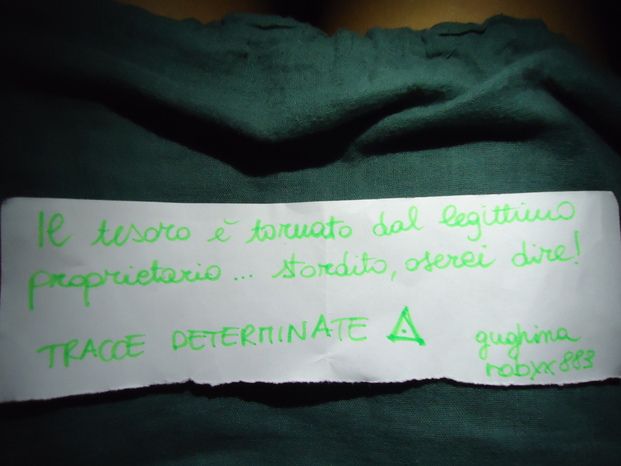 Il tesoro è tornato dal legittimo
proprietario... stordito, oserei dire!
TRACCE DETERMINATE
gughina
robxx883